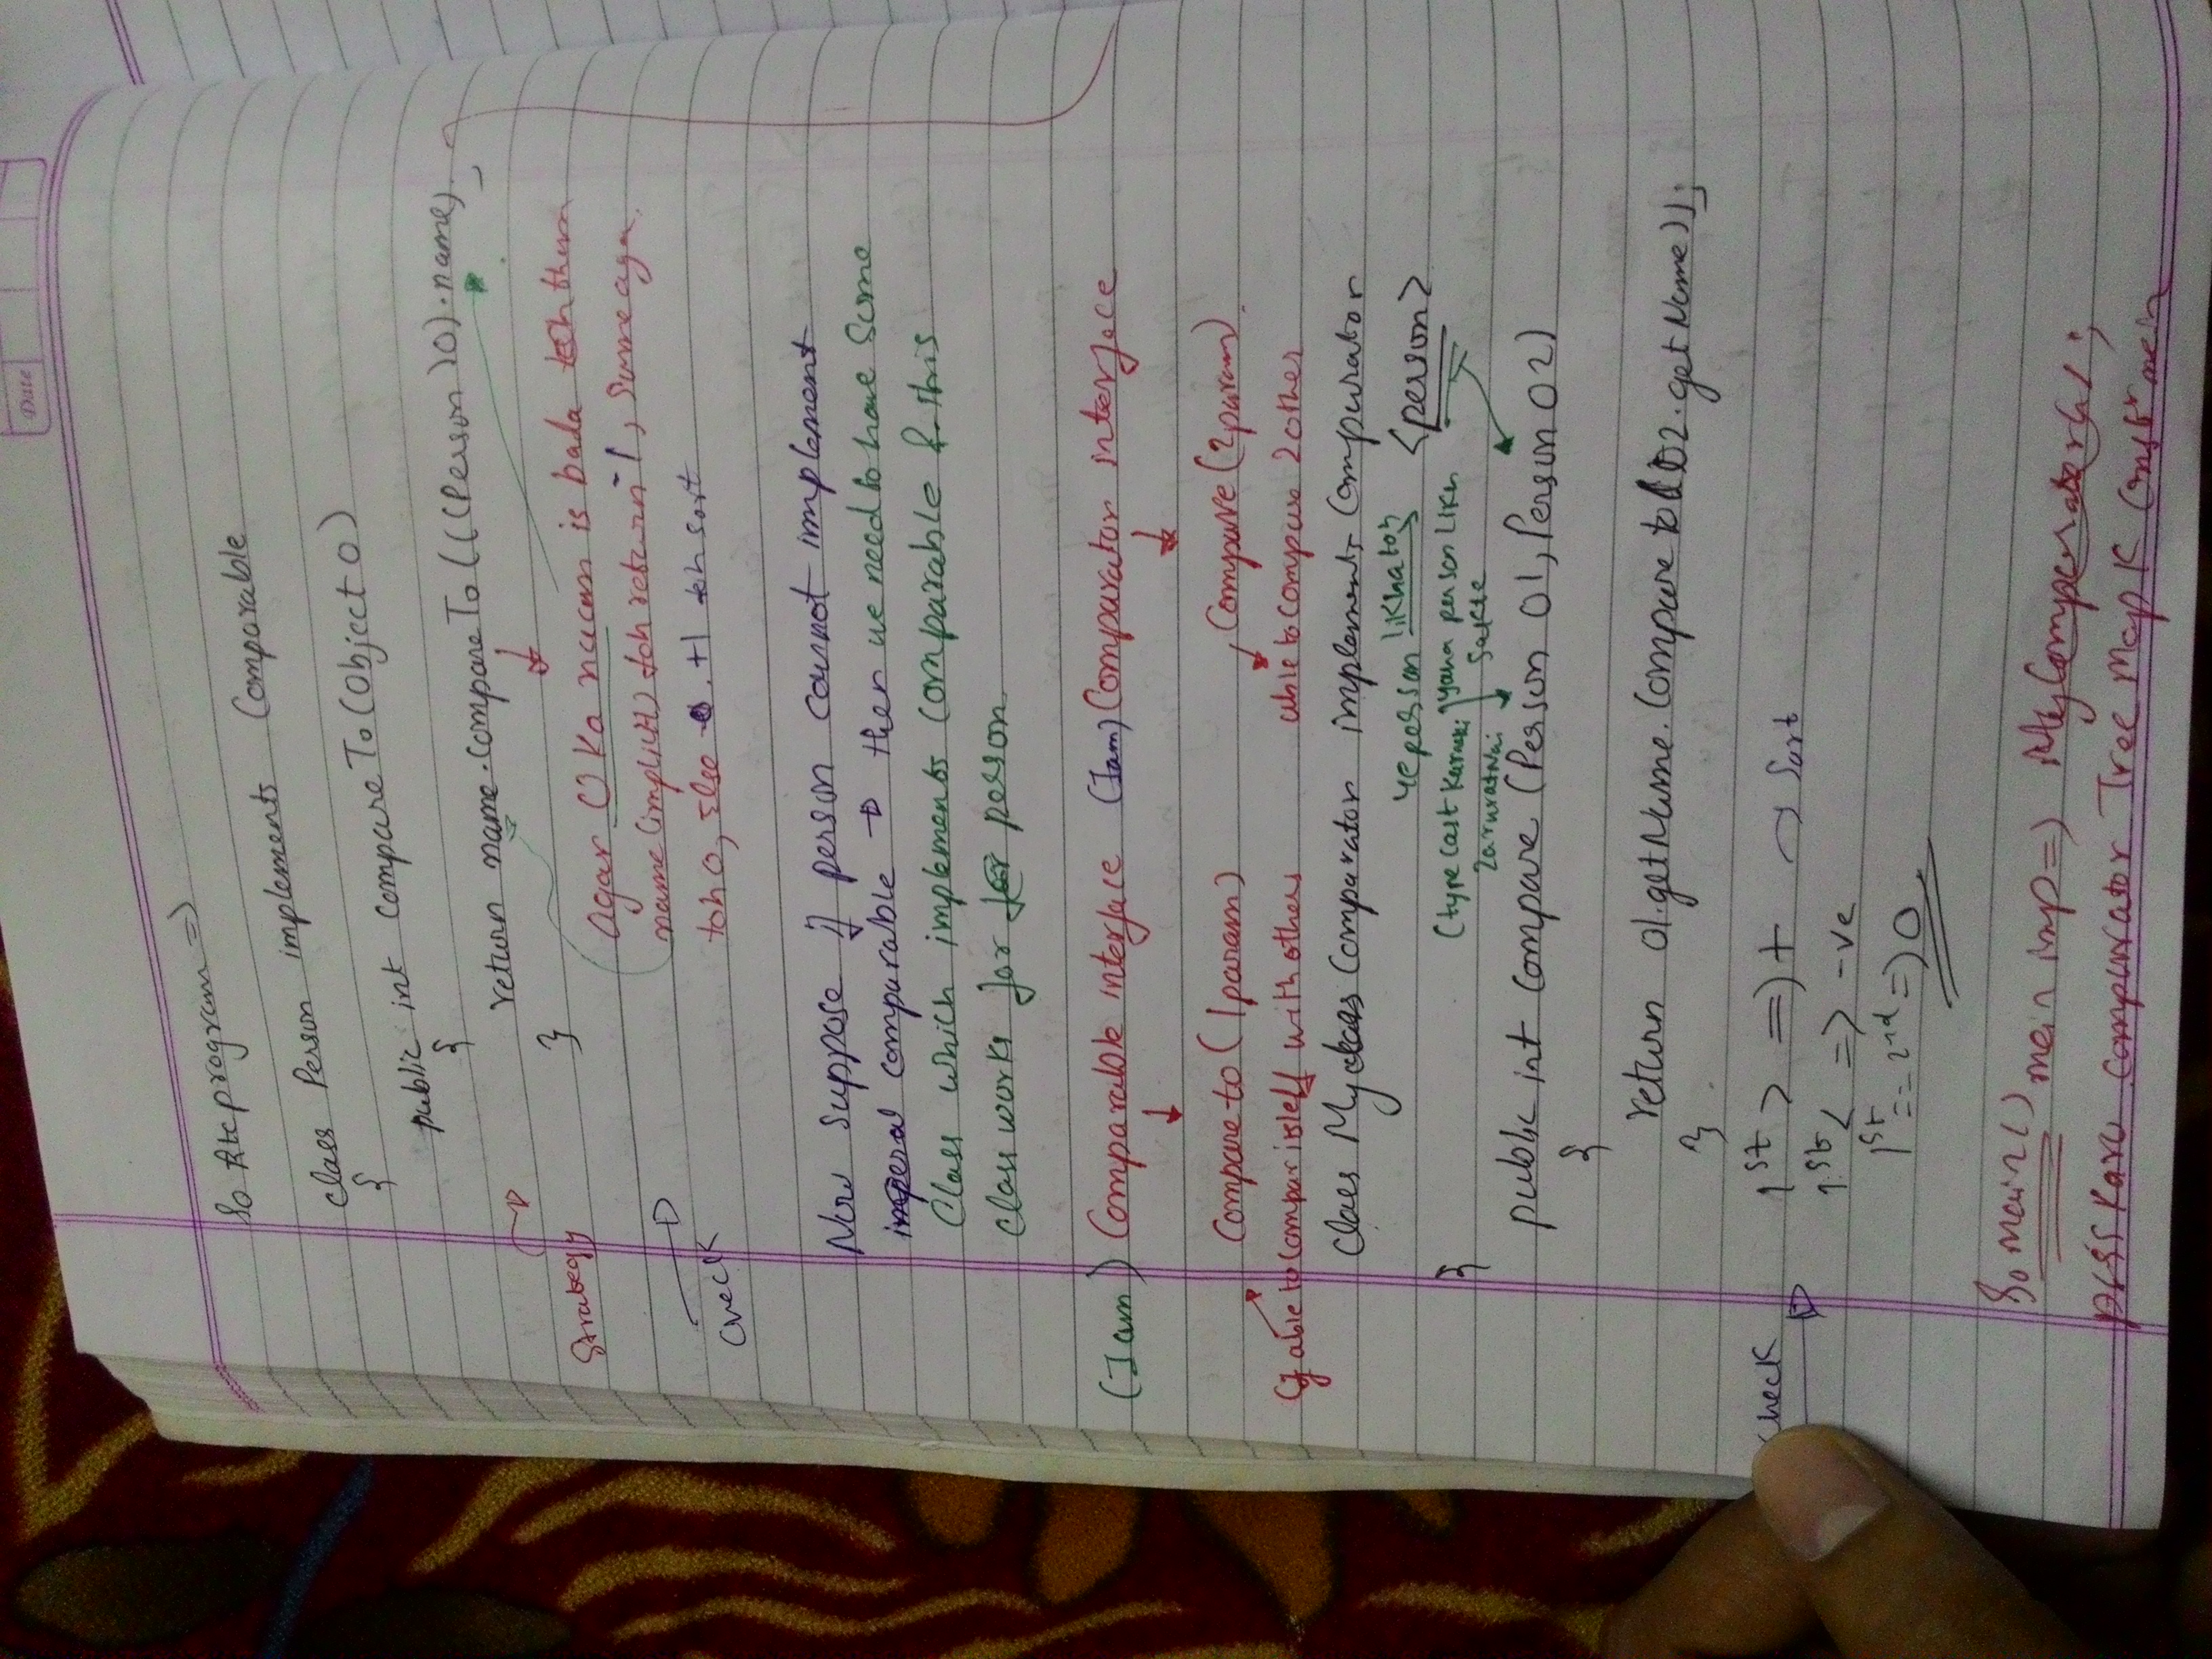 Date
So Rtcprogram =>
class Person implements Comparable
{
public int CompareTo (Object O)
{
return name.compareTo (((Person)O).name)
Strategy
}
agar O Ka naam is bada toh them
name (implicit) toh return -1, Same aga
toh 0, else . +1 toh sort
Check
Now suppose if person cannot implement
comparable → then we need to have some
Class which implements comparable & this
class works for for person.
(I am) Comparable interface (Iam) Comparator interface
↓ ↓
Compare to (1 param) Compare (2 param)
able to compar itself with others able to compare 2 other
class Myclass Comparator implements Comparator
yeperson likha toh <person>
(type cast Karneki yaha person Likh
ZaruratNai Sakte
{
public int compare (Person O1, Person O2)
{
return O1.getName.Compare to (O2.getName));
}
check
1st > => + → Sort
1st < => -ve
1st == 2nd => 0
So main() mein imp => MyComparator();
pass Karo comparator Tree Map K Constr mein